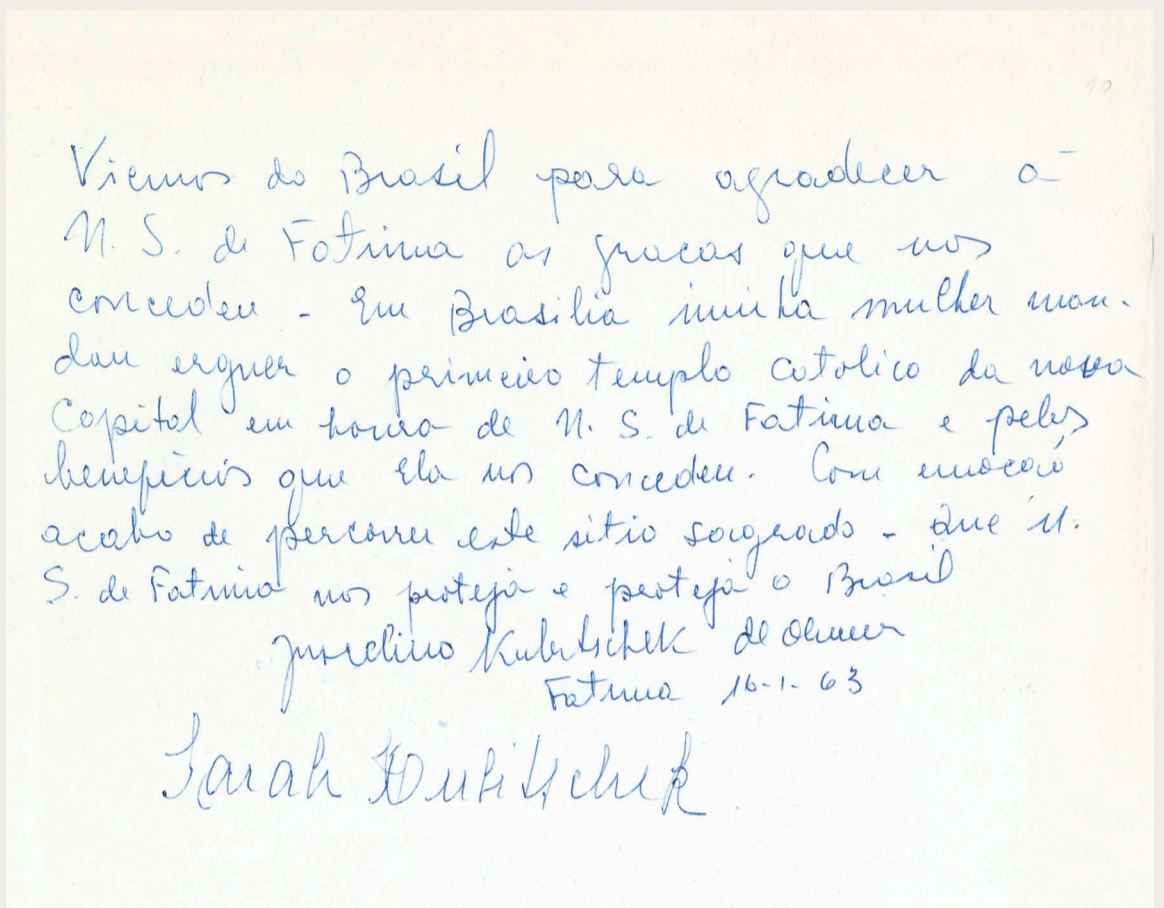 10
Viemos do Brasil para agradecer à
N. S. de Fatima as graças que nos
concedeu - Em Brasilia minha mulher man-
dou erguer o primeiro templo catolico da nova
Capital em honra de N. S. de Fatima e pelos
beneficios que Ela nos concedeu. Com emoçaõ
acabo de percorrer este sitio sagrado - Que N.
S. de Fatima nos proteja e proteja o Brasil
Juscelino Kubitschek de Oliveira
Fatima 16-1-63
Sarah Kubitschek